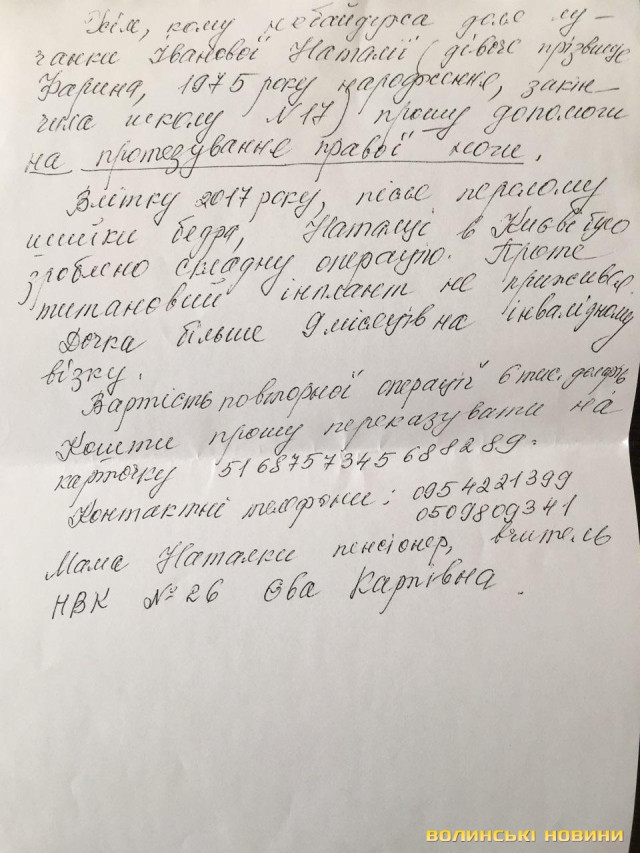 Всім, кому небайдужа доля лу-
чанки Іванової Наталії (дівоче прізвище
Фарина, 1975 року народження, закін-
чила школу №17) прошу допомоги
на протезування правої ноги.
Влітку 2017 року, після перелому
шийки бедра, Наталці в Києві було
зроблено складну операцію. Проте
титановий інплант не прижився.
Дочка більше 9 місяців на інвалідному
візку.
Вартість повторної операції 6 тис. доларів
Кошти прошу переказувати на
карточку 5168757345688289.
Контактні телефони: 0954221399
0509809341
Мама Наталки пенсіонер, вчитель
НВК №26 Єва Карпівна.
ВОЛИНСЬКІ НОВИНИ